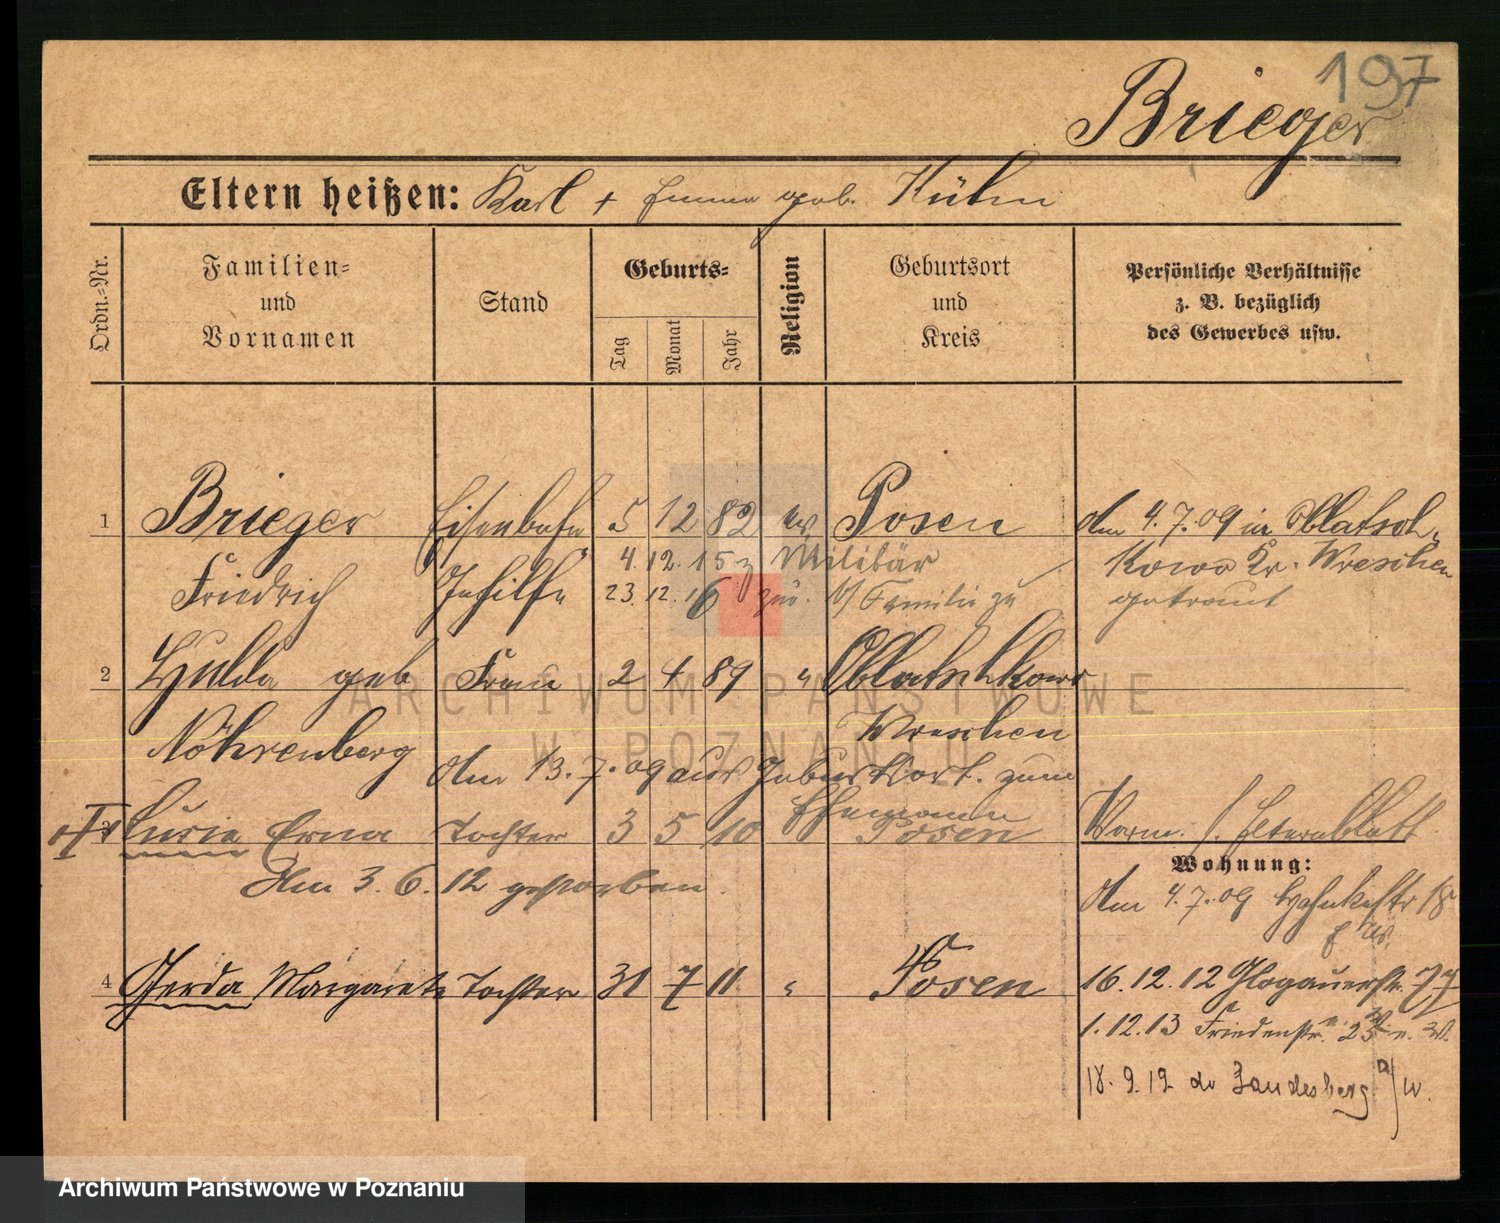 197
Brieger
Eltern heißen: Karl + Emma geb. Kühn
Ordn.=Nr.
Familien=
und
Vornamen
Stand
Geburts=
Tag
Monat
Jahr
Religion
Geburtsort
und
Kreis
Persönliche Verhältnisse
z. B. bezüglich
des Gewerbes usw.
1 Brieger Eisenbahn 5 12 82 ev. Posen Am 4.7.09 in
4.12.15 z Militär
Kr. Wreschen
Friedrich Gehilfe 23.12.16 zur. v/ Familie zu
getraut
2 Hulda geb Frau 2 4 89 "
Nöhrenberg Wreschen
Am 13.7.09 aus Geburtsort. zum
Ehemann
3 Lucie Erna Tochter 3 5 10 Posen
Am 3.6.12 gestorben.
Verm. s. Elternblatt
Wohnung:
Am 4.7.09 18
4 Gerda Margarete Tochter 31 7 11 " Posen
16.12.12 Glogauerstr. 77
1.12.13 Friedenstr. 25
18.9.19 Landesberg a/w.
ARCHIWUM PAŃSTWOWE
W POZNANIU
Archiwum Państwowe w Poznaniu